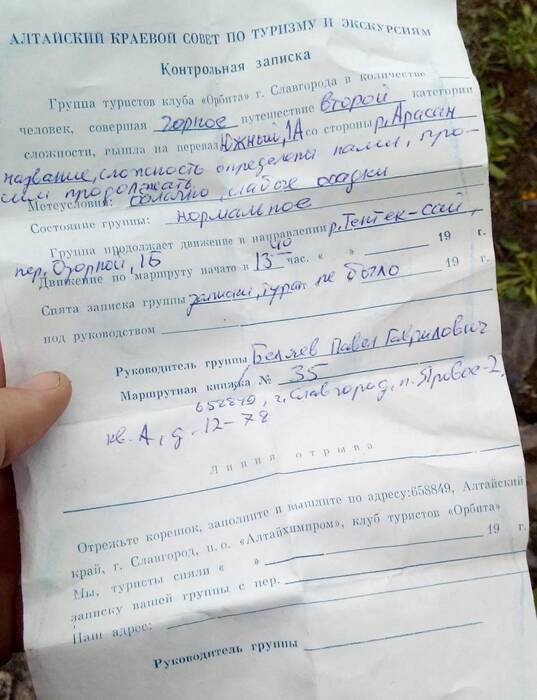 АЛТАЙСКИЙ КРАЕВОЙ СОВЕТ ПО ТУРИЗМУ И ЭКСКУРСИЯМ
Контрольная записка
Группа туристов клуба «Орбита» г. Славгорода в количестве
человек, совершая горное путешествие второй категории
сложности, вышла на перевал Южный, 1А со стороны р. Арасан
название, сложность определены нами, про-
сим продолжать
Метеусловия: облачно, слабые осадки
Состояние группы: нормальное
Группа продолжает движение в направлении р. Тентек-сай,
пер. Озорной, 1Б
Движение по маршруту начато в 13 40 час. « » 19 г.
Снята записка группы записки, тура не было 19 г.
под руководством
Руководитель группы Беляев Павел Гаврилович
Маршрутная книжка № 35
658849, г. Славгород, п. Яровое-2,
кв. А, д. 12-78
Линия отрыва
Отрежьте корешок, заполните и вышлите по адресу: 658849, Алтайский
край, г. Славгород, п. о. «Алтайхимпром», клуб туристов «Орбита»
Мы, туристы сняли « » 19 г.
записку вашей группы с пер.
Наш адрес:
Руководитель группы